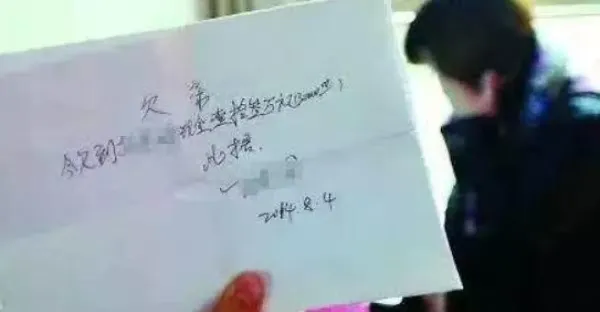 欠条
今欠到现金叁拾叁万元(330000元)
此据.
2014.8.4